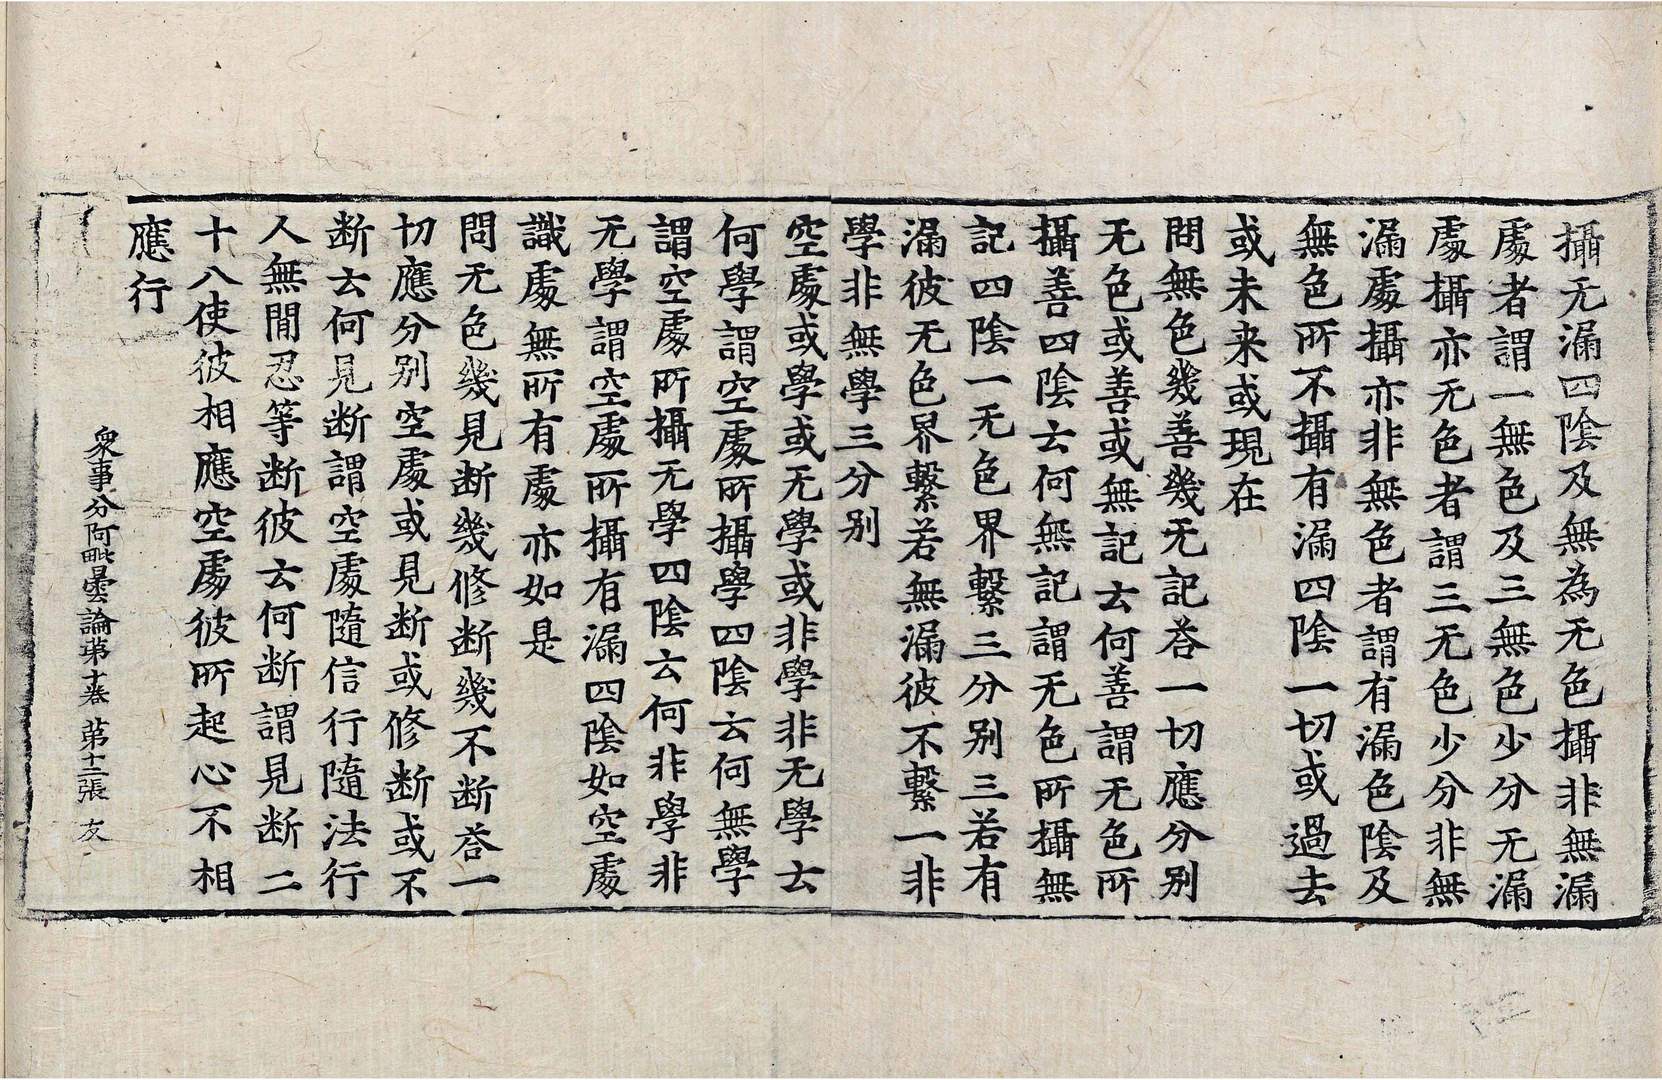 攝无漏四陰及無為无色攝非無漏
處者謂一無色及三無色少分无漏
處攝亦无色者謂三无色少分非無
漏處攝亦非無色者謂有漏色陰及
無色所不攝有漏四陰一切或過去
或未来或現在
問無色幾善幾无記荅一切應分别
无色或善或無記云何善謂无色所
攝善四陰云何無記謂无色所攝無
記四陰一无色界繫三分别三若有
漏彼无色界繫若無漏彼不繫一非
學非無學三分别
空處或學或无學或非學非无學云
何學謂空處所攝學四陰云何無學
謂空處所攝无學四陰云何非學非
无學謂空處所攝有漏四陰如空處
識處無所有處亦如是
問无色幾見断幾修断幾不断荅一
切應分别空處或見断或修断或不
断云何見断謂空處隨信行隨法行
人無間忍等断彼云何断謂見断二
十八使彼相應空處彼所起心不相
應行
衆事分阿毗曇論第十卷 第十二張 友